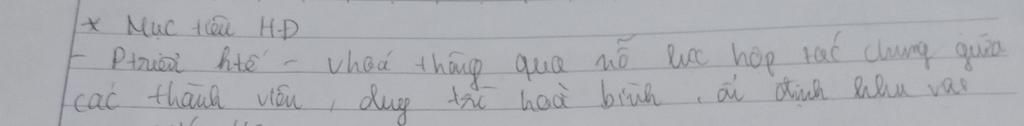 * Mục tiêu HĐ
- Ptriển ktế - vhoá thông qua nỗ lực hợp tác chung giữa
các thành viên, duy trì hoà bình, ổ định khu vực